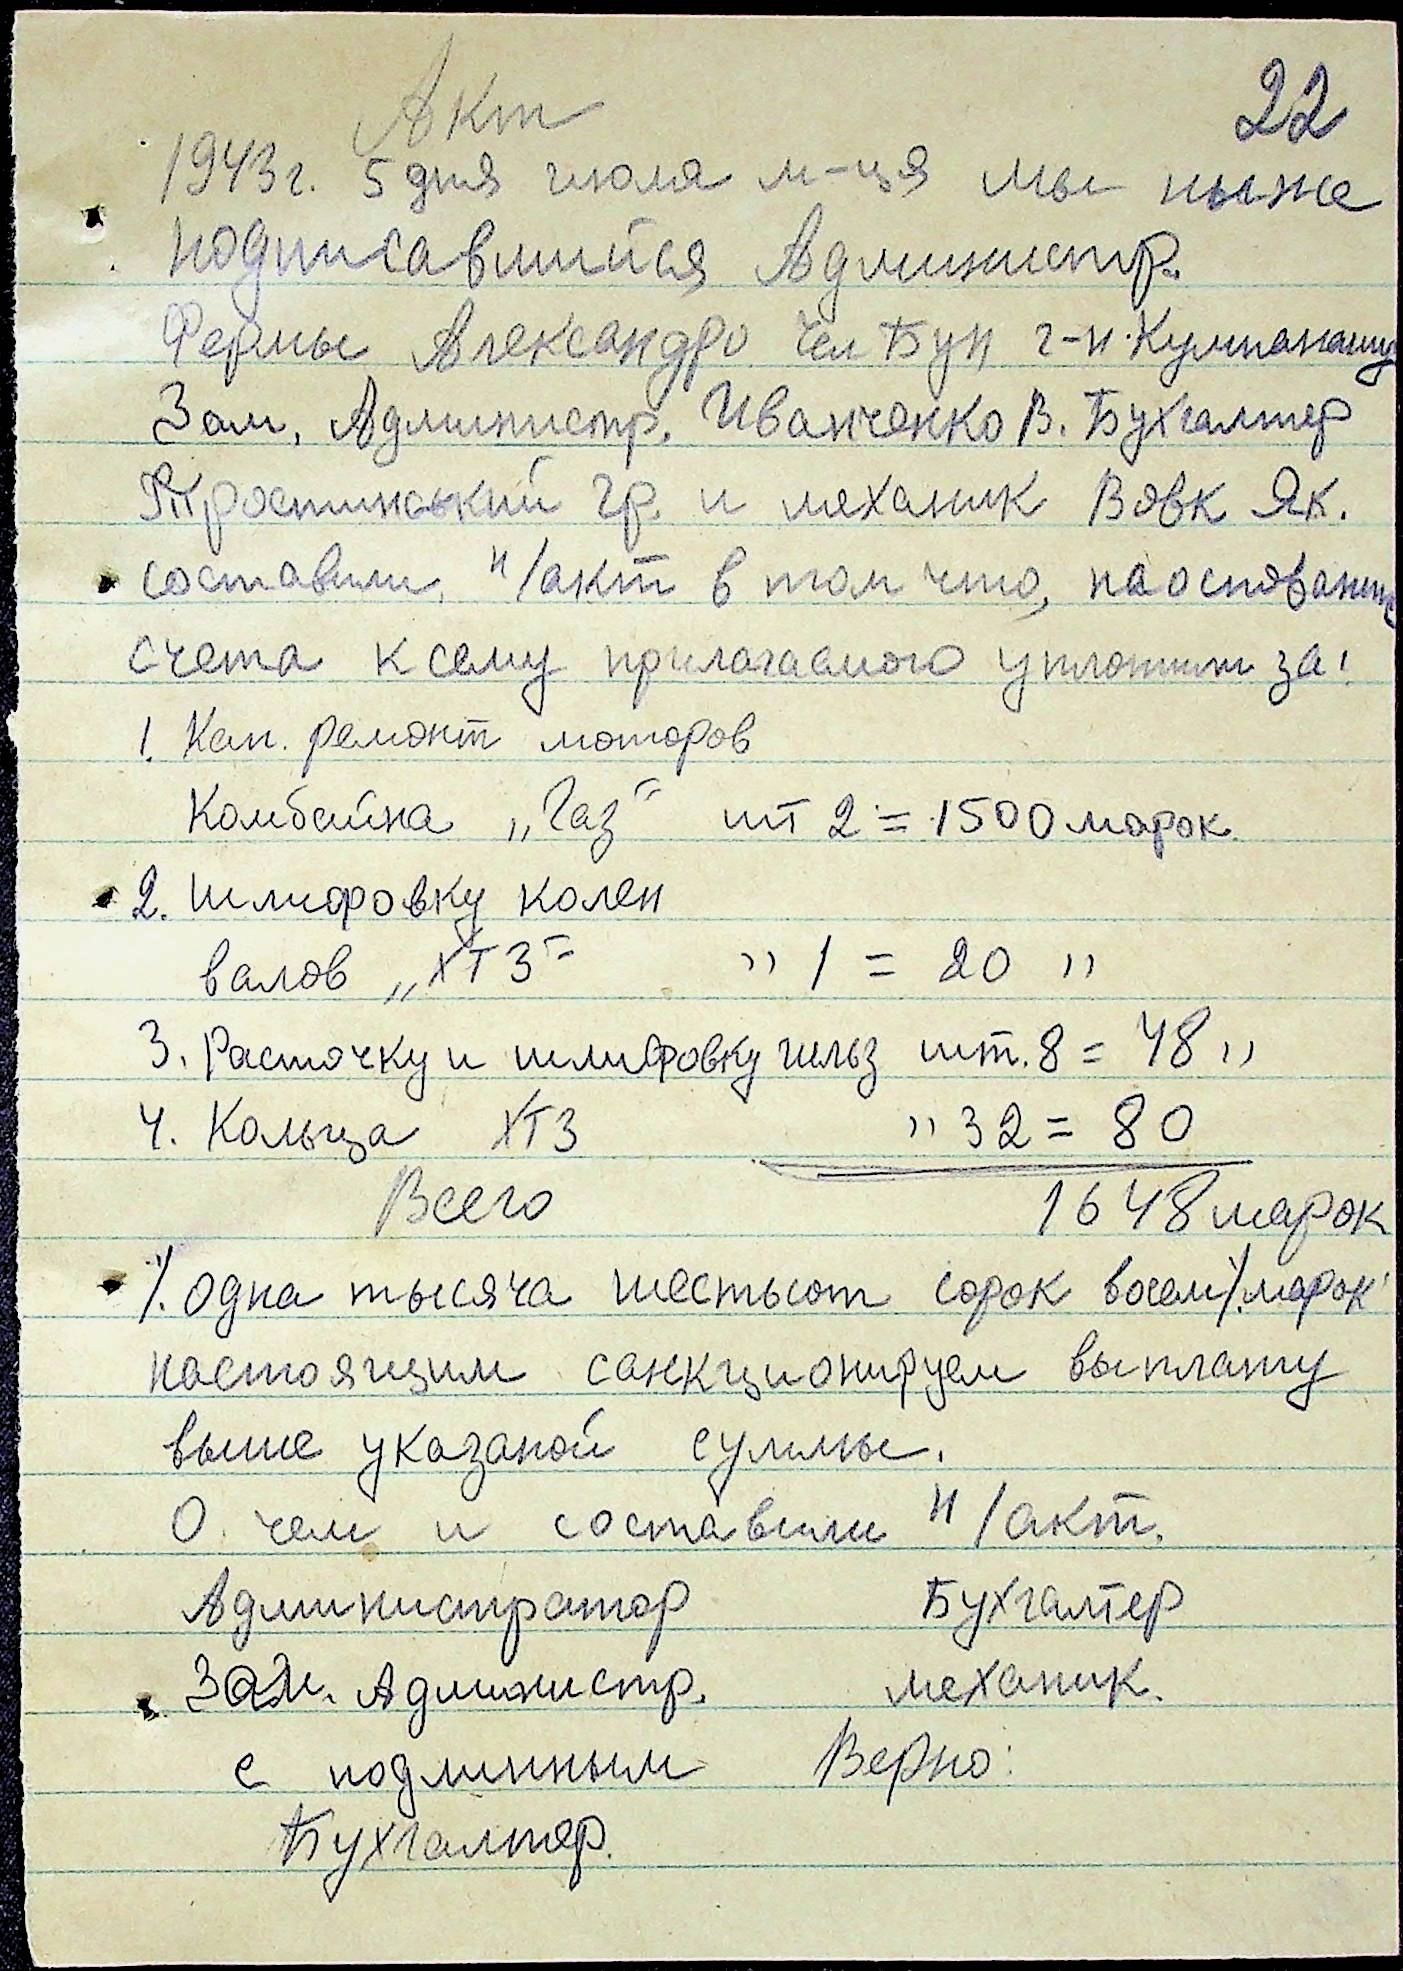 Акт
22
1943 г. 5 дня июля м-ця мы ниже
подписавшийся Администр.
Фермы Александро чел Бун г-н. Кулианашу
Зам. Администр. Иванченко В. Бухгалтер
Тростинський Гр. и механик Вовк Як.
составили н/акт в том что, на основании
счета к сему прилагаемого уплатит за:
1. Кап. ремонт моторов
Комбайна „Газ" шт 2 = 1500 марок.
2. Шлифовку колен
валов „ХТЗ" " 1 = 20 "
3. Расточку и шлифовку гильз шт. 8 = 48 "
4. Кольца ХТЗ " 32 = 80
Всего 1648 марок
/. одна тысяча шестьсот сорок восем/. марок
настоящим санкционируем выплату
выше указаной суммы.
О чем и составили н/акт.
Администратор Бухгалтер
Зам. Администр. механик.
с подлинным Верно:
Бухгалтер.